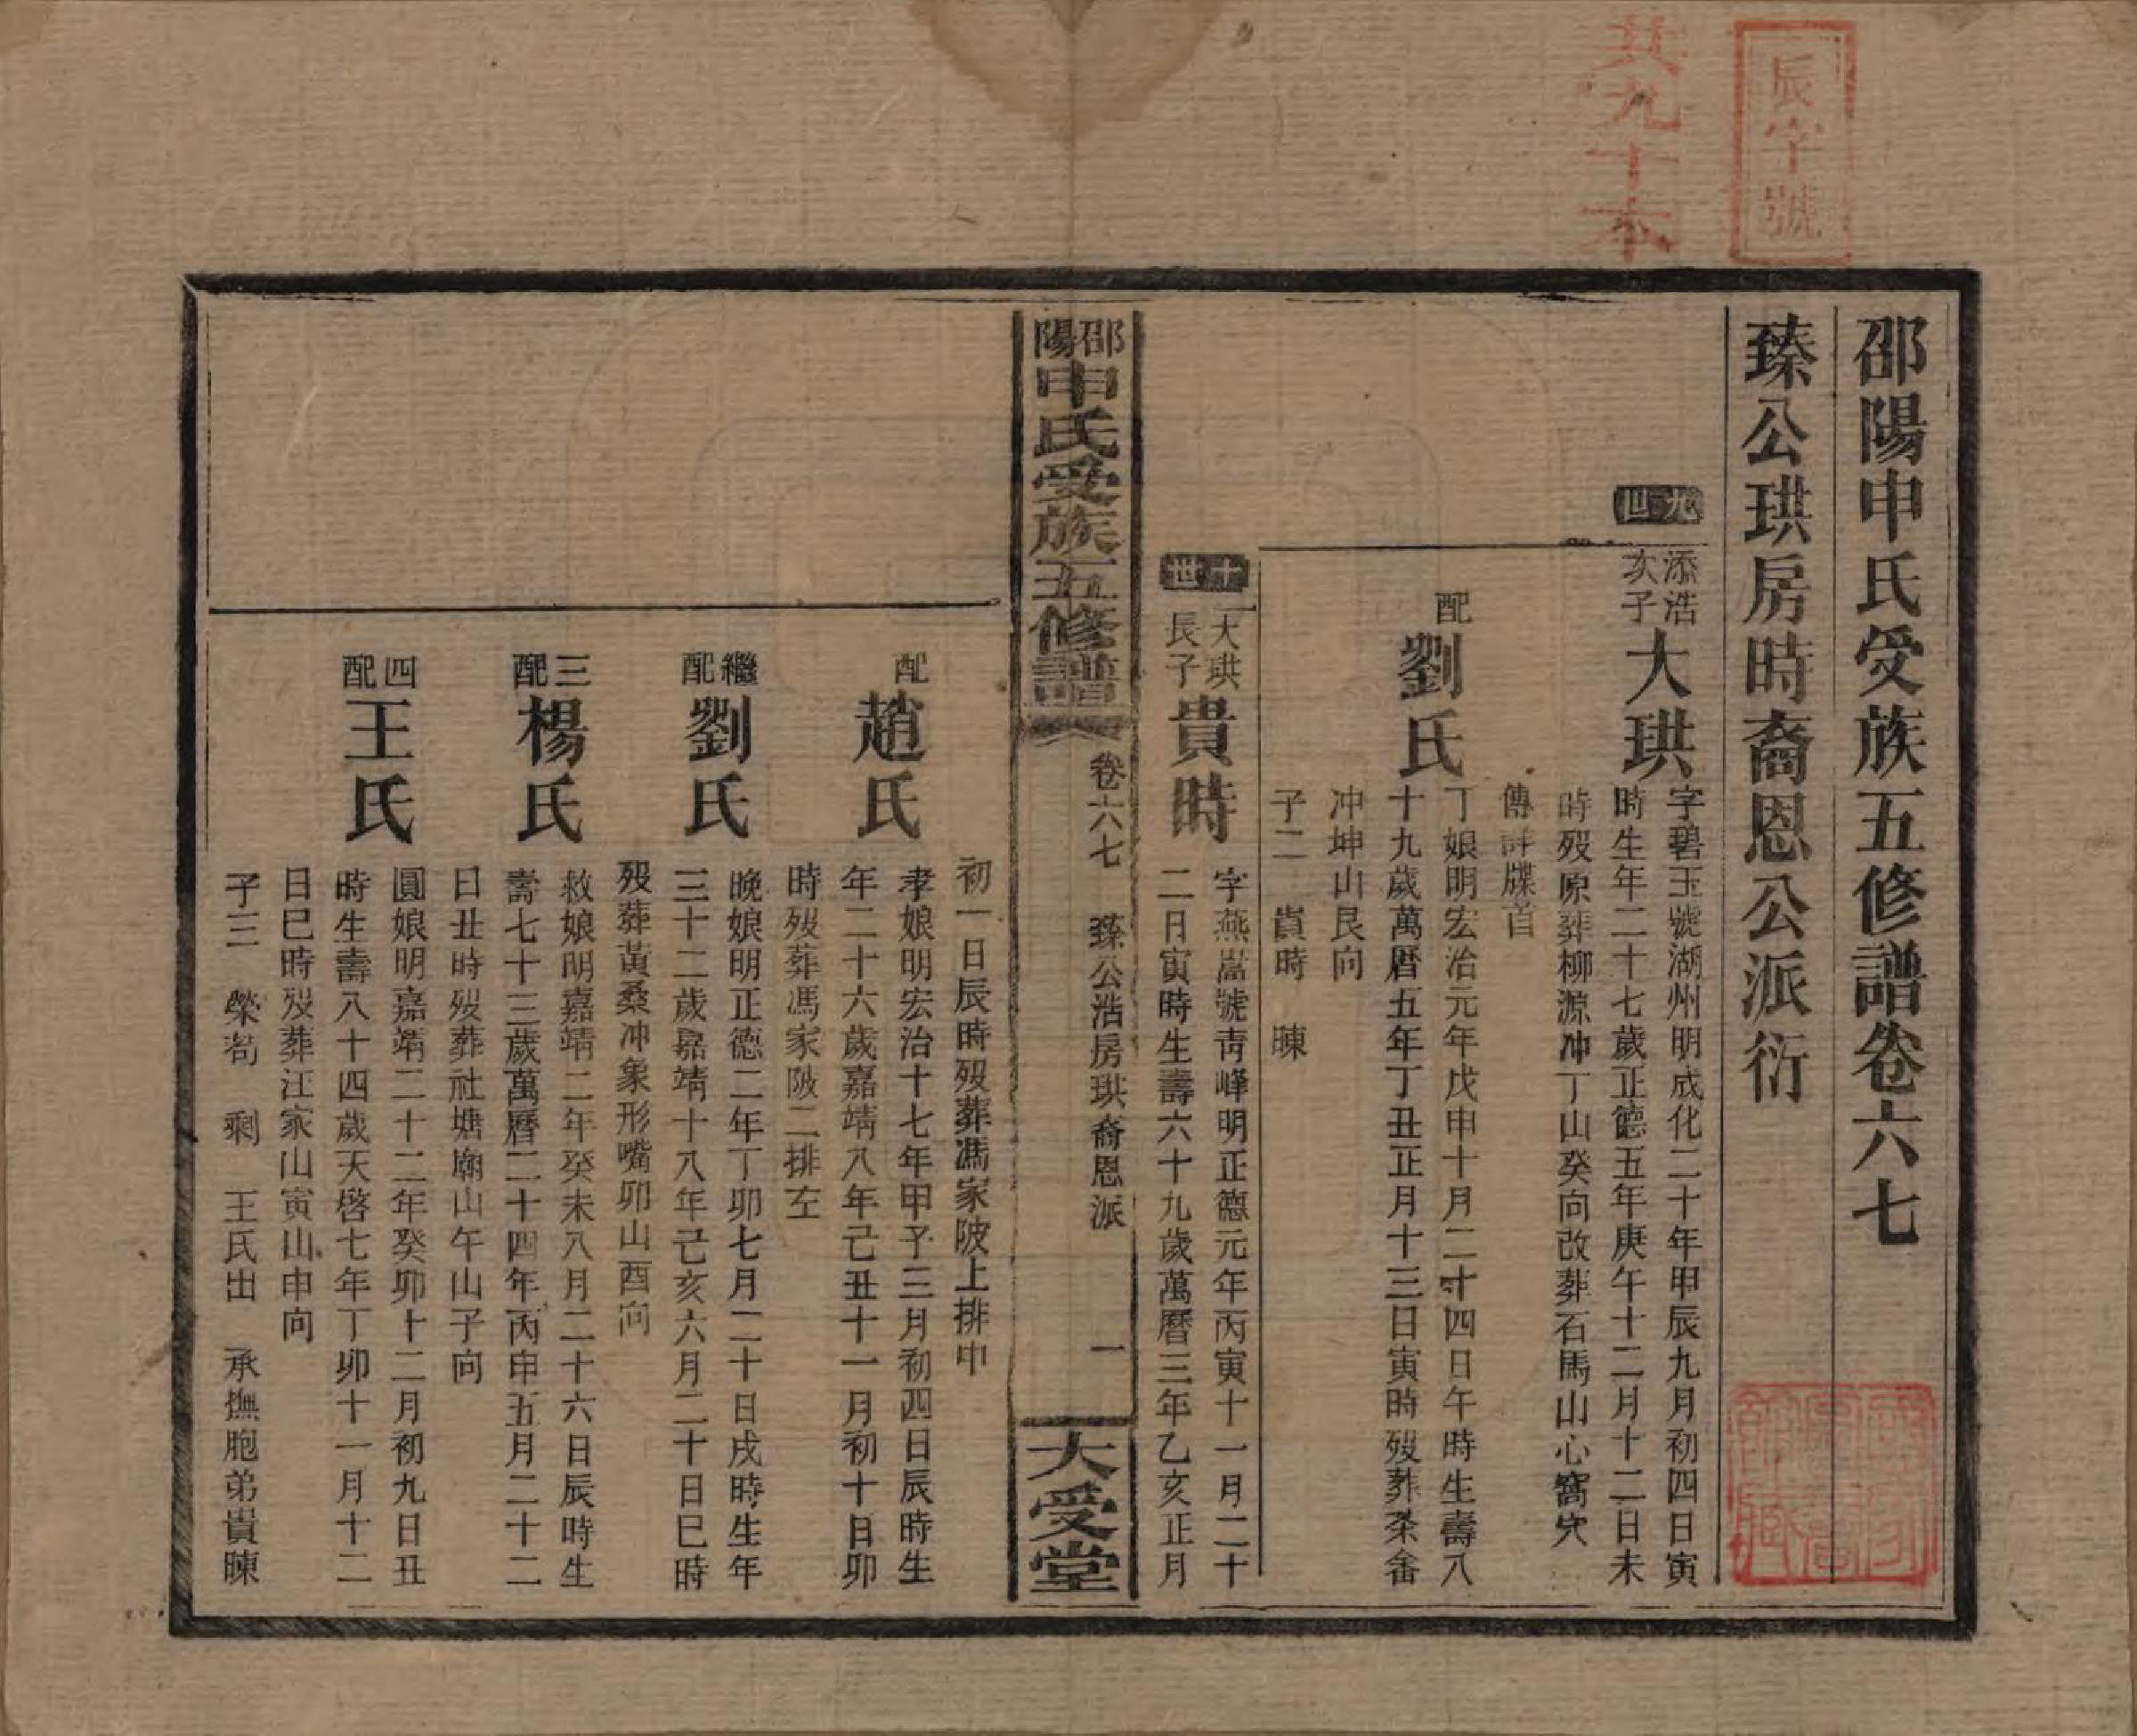 辰字號
共九十本
邵陽申氏受族五修譜卷六七
臻公珙房時裔恩公派衍
九世
添浩次子
大珙
字碧玉號湖州明成化二十年甲辰九月初四日寅
時生年二十七歲正德五年庚午十二月十二日未
時歿原葬柳源冲丁山癸向改葬石馬山心窩穴
傳詳牒首
配
劉氏
丁娘明宏治元年戊申十月二十四日午時生壽八
十九歲萬曆五年丁丑正月十三日寅時歿葬茶畬
冲坤山艮向
子二 貴時 暕
十世
大珙長子
貴時
字燕嵩號青峰明正德元年丙寅十一月二十
二日寅時生壽六十九歲萬曆三年乙亥正月
邵陽申氏受族五修譜
卷六七 臻公浩房珙裔恩派 一
大受堂
初一日辰時歿葬馮家陂上排中
配
趙氏
孝娘明宏治十七年甲子三月初四日辰時生
年二十六歲嘉靖八年己丑十一月初十日卯
時歿葬馮家陂二排左
繼配
劉氏
晚娘明正德二年丁卯七月二十日戌時生年
三十二歲嘉靖十八年己亥六月二十日巳時
歿葬黃桑冲象形嘴卯山酉向
三配
楊氏
救娘明嘉靖二年癸未八月二十六日辰時生
壽七十三歲萬曆二十四年丙申五月二十二
日丑時歿葬社塘廟山午山子向
四配
王氏
圓娘明嘉靖二十二年癸卯十二月初九日丑
時生壽八十四歲天啓七年丁卯十一月十二
日巳時歿葬江家山寅山申向
子三 榮 茍 剩 王氏出 承撫胞弟貴暕